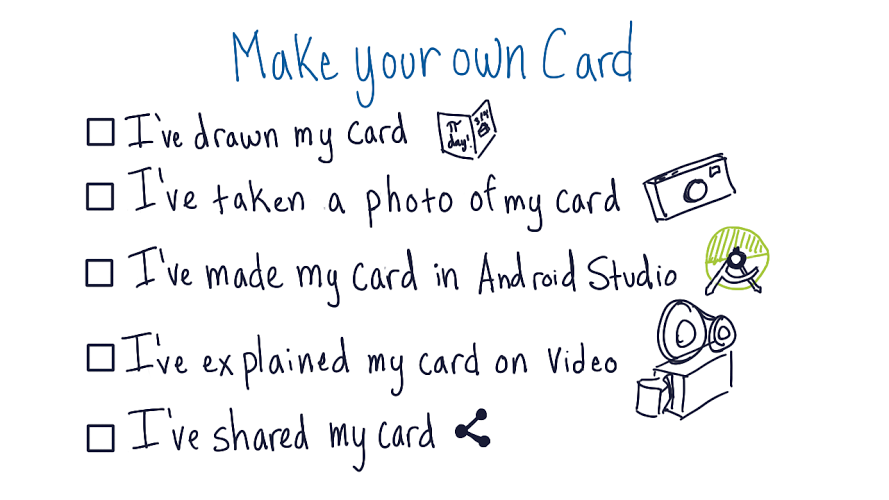 Make your own Card
I've drawn my card
π day! 3.14
I've taken a photo of my card
I've made my card in Android Studio
I've explained my card on Video
I've shared my card